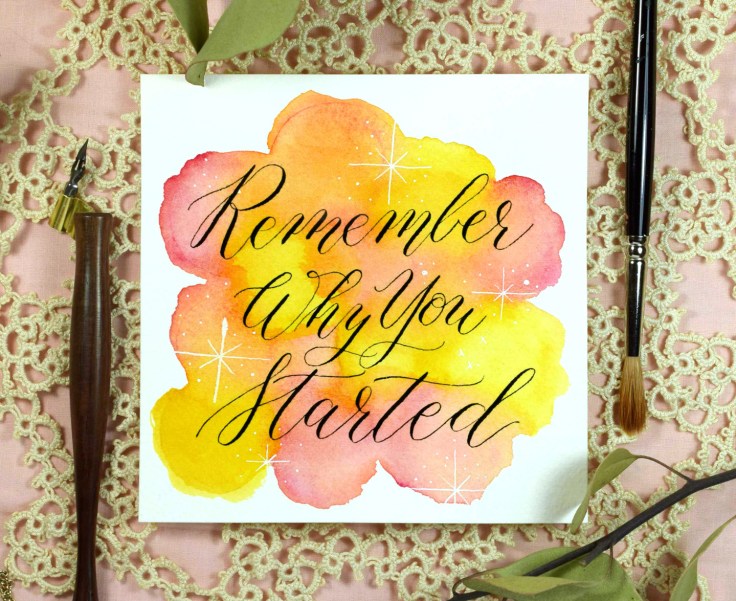 Remember
Why You
Started